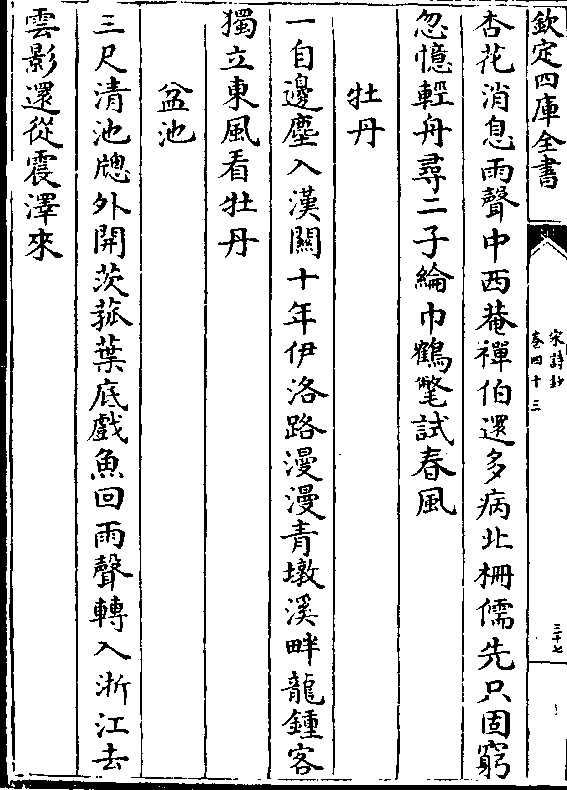 欽定四庫全書
宋詩鈔
卷四十三
三十七
杏花消息雨聲中西菴禪伯還多病北柵儒先只固窮
忽憶輕舟尋二子綸巾鶴氅試春風
牡丹
一自邊塵入漢關十年伊洛路漫漫青墩溪畔龍鍾客
獨立東風看牡丹
盆池
三尺清池牕外開茨菰葉底戲魚回雨聲轉入浙江去
雲影還從震澤來